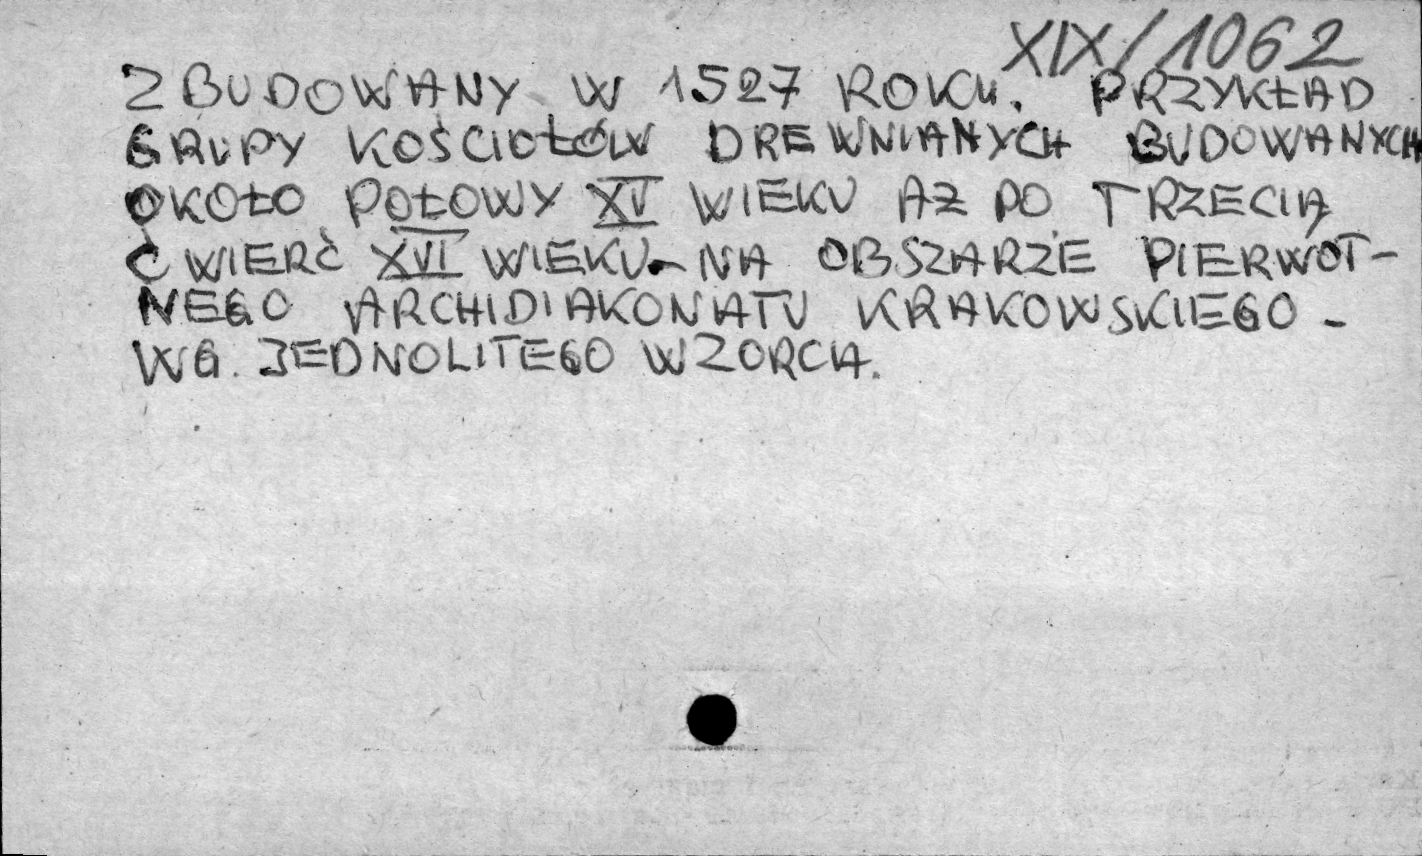 XIX/1062
ZBUDOWANY W 1527 ROKU. PRZYKŁAD
GRUPY KOŚCIOŁÓW DREWNIANYCH BUDOWANYCH
OKOŁO POŁOWY XV WIEKU AŻ PO TRZECIĄ
ĆWIERĆ XVI WIEKU - NA OBSZARZE PIERWOT-
NEGO ARCHIDIAKONATU KRAKOWSKIEGO -
WG. JEDNOLITEGO WZORCA.